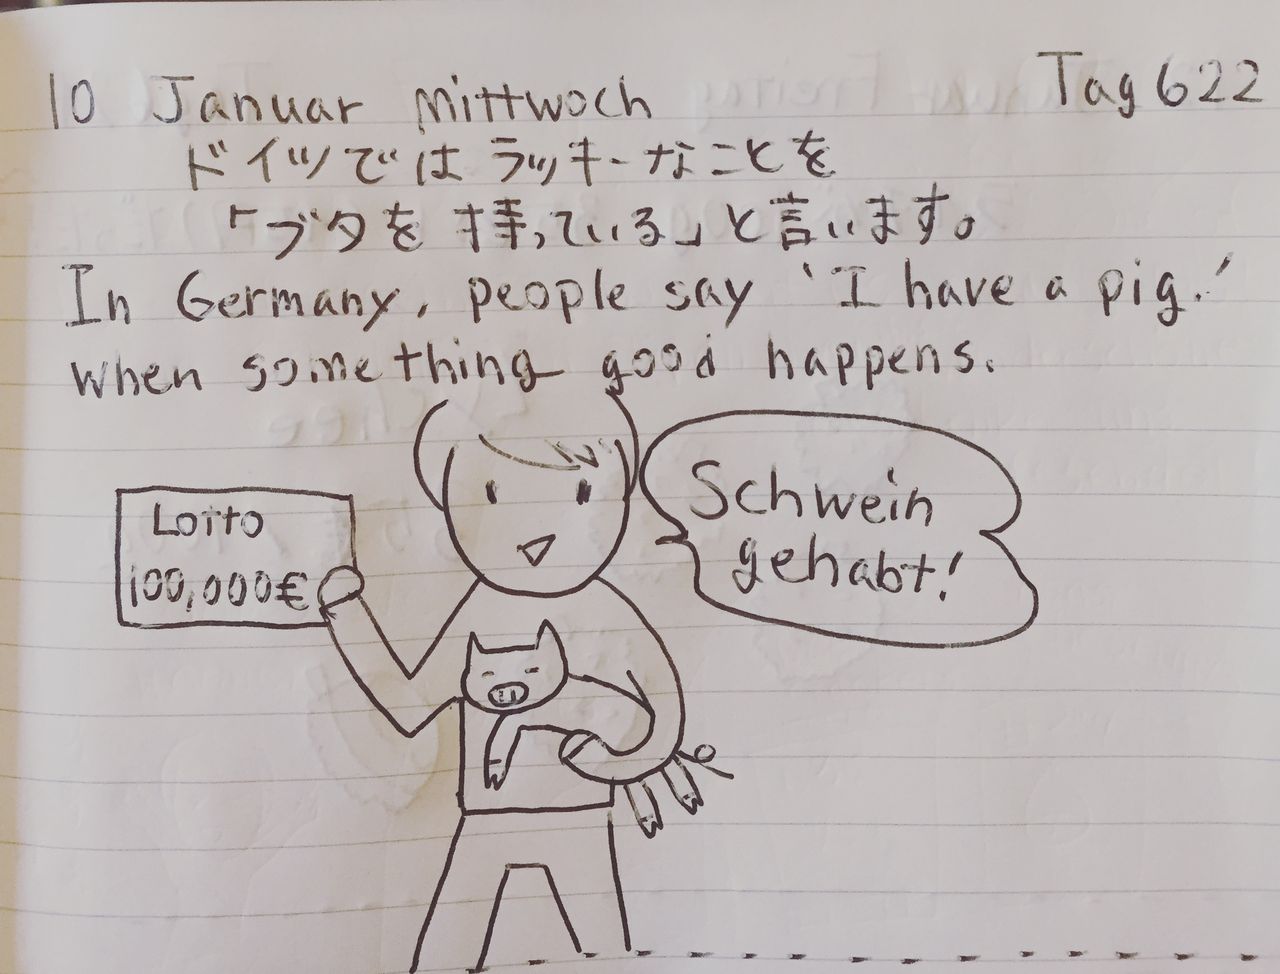 10 Januar Mittwoch Tag 622
ドイツではラッキーなことを
「ブタを持っている」と言います。
In Germany, people say 'I have a pig.'
when something good happens.
Schwein
gehabt!
Lotto
100,000€